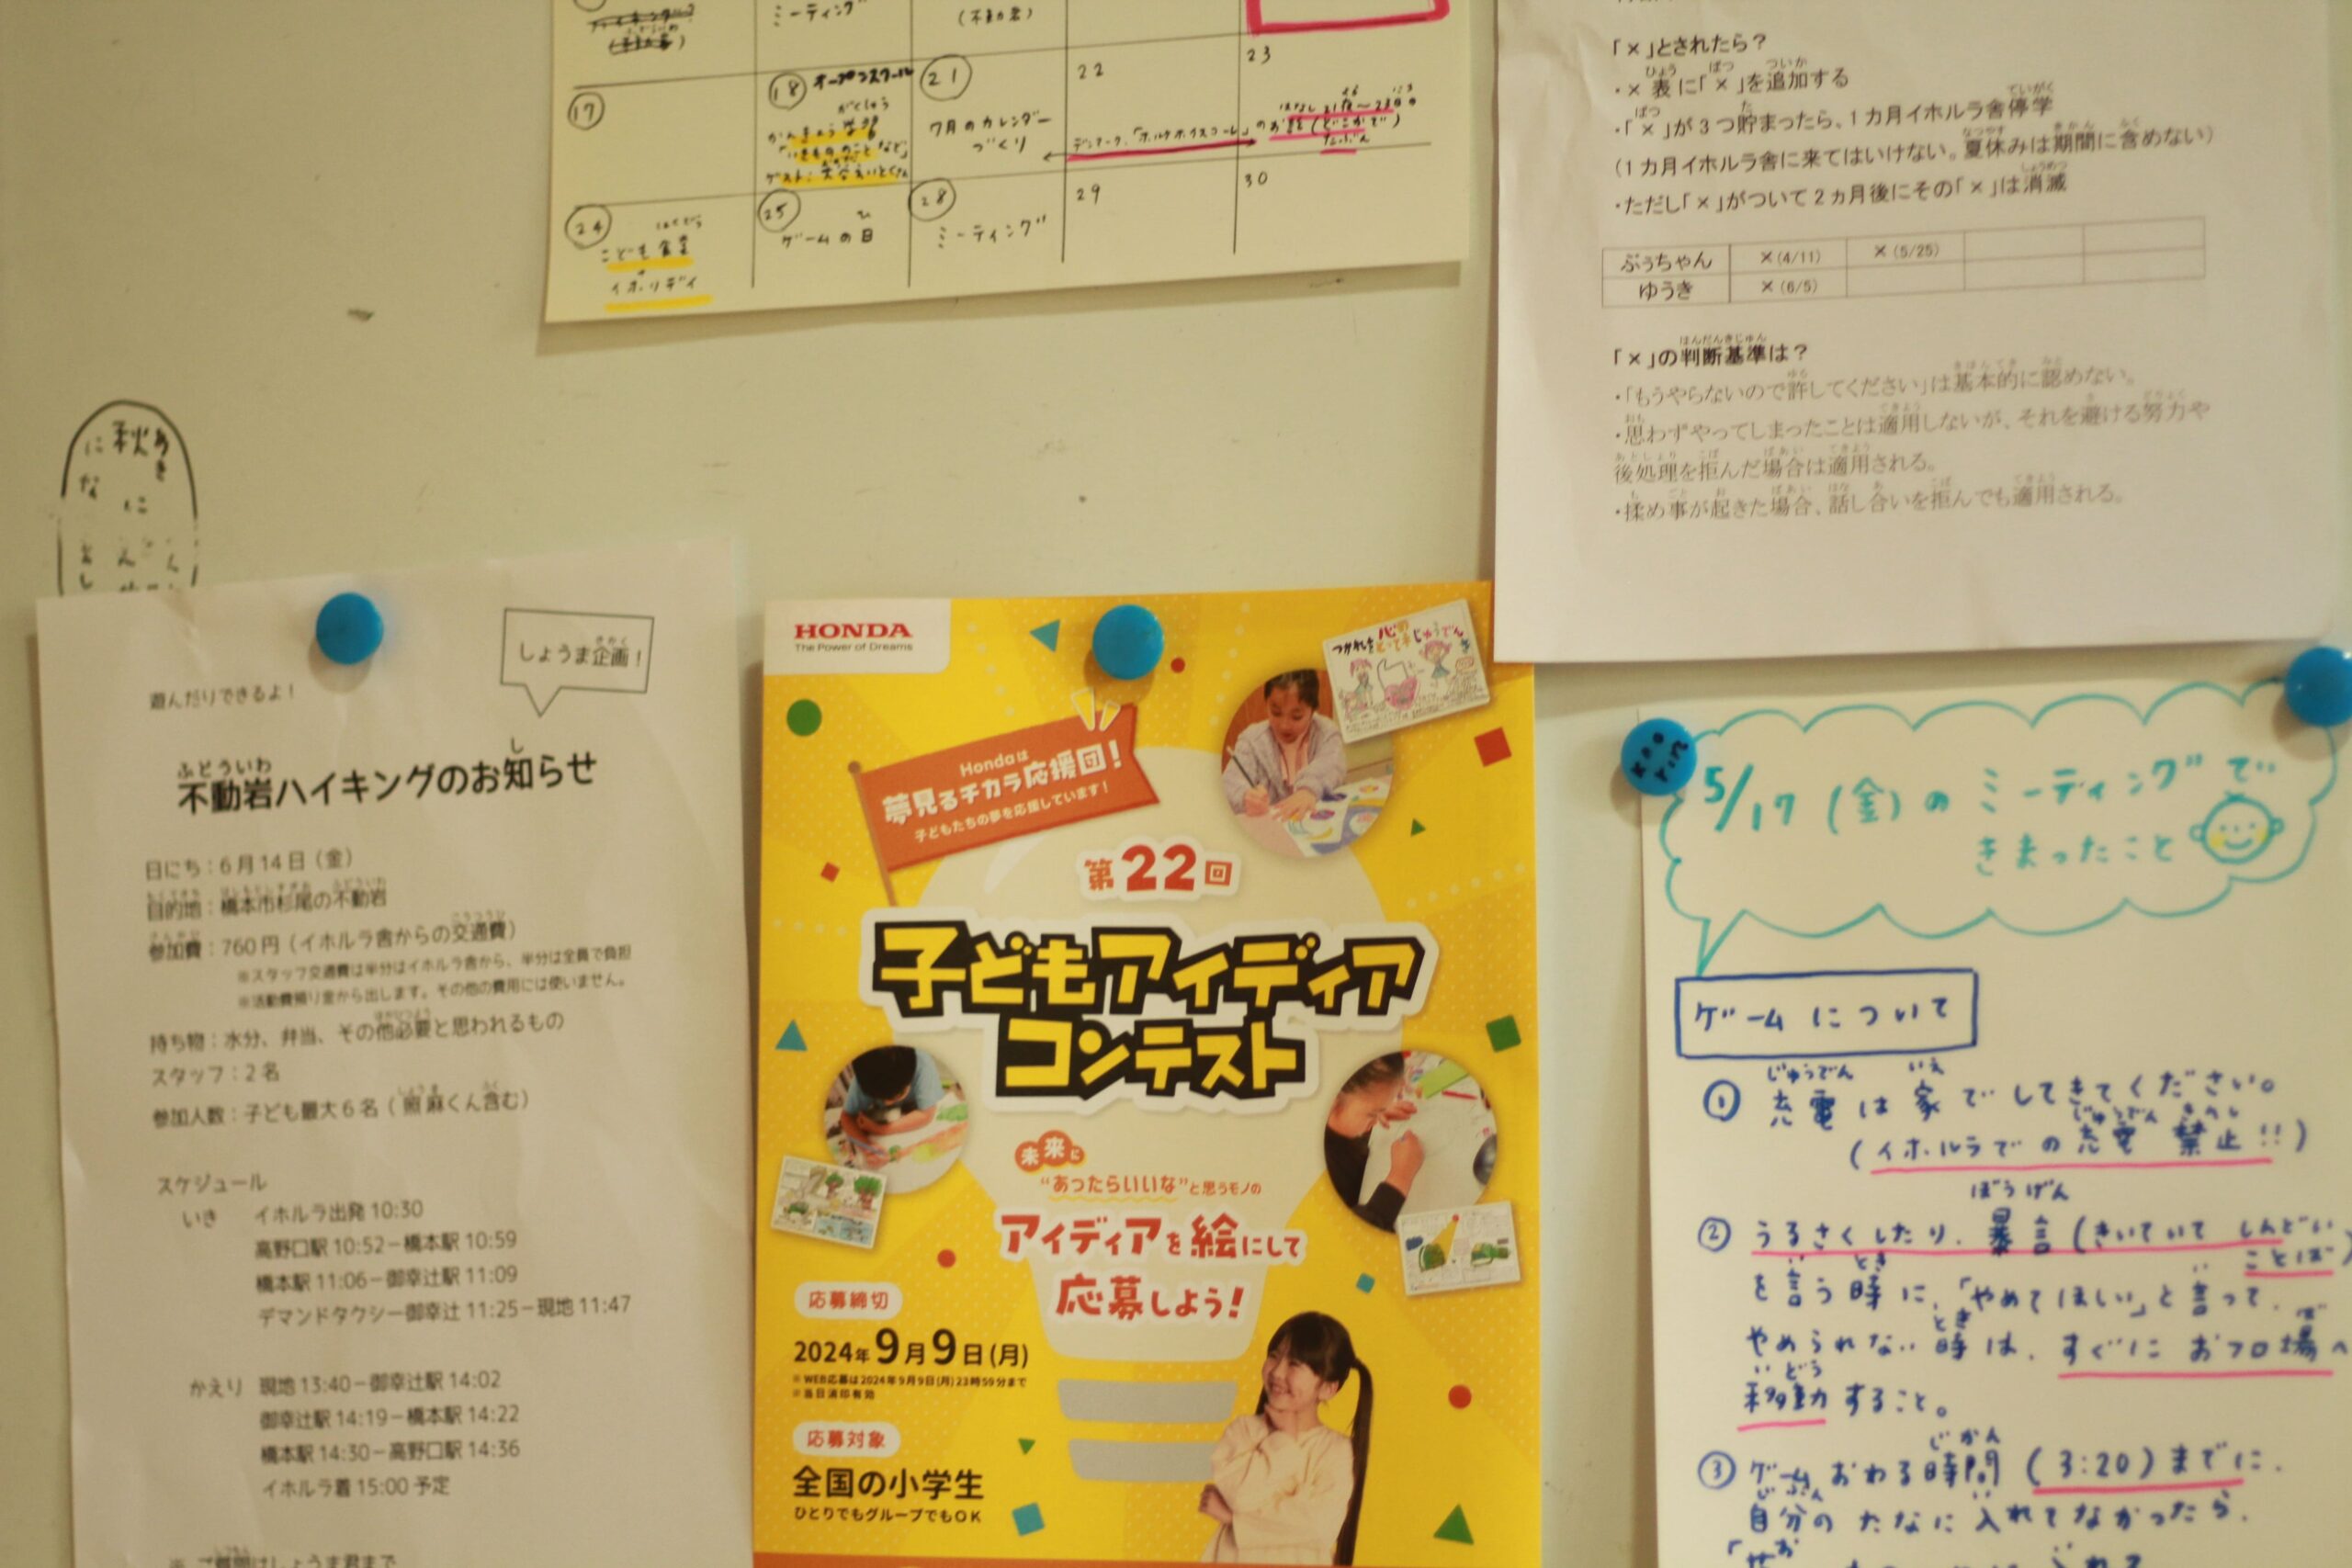 ミーティング
(不動岩)
17
18 オープンスクール
がくしゅう
ゲスト:
21
7月のカレンダー
づくり
22
23
デンマーク、「ホルケホイスコーレ」のお話(どこかで)
たぶん
24
こども食堂
+
イホリデイ
25
ゲームの日
28
ミーティング
29
30
「×」とされたら?
・×表に「×」を追加する
・「×」が3つ貯まったら、1カ月イホルラ舎停学
(1カ月イホルラ舎に来てはいけない。夏休みは期間に含めない)
・ただし「×」がついて2ヵ月後にその「×」は消滅
ぶぅちゃん ×(4/11) ×(5/25)
ゆうき ×(6/5)
「×」の判断基準は?
・「もうやらないので許してください」は基本的に認めない。
・思わずやってしまったことは適用しないが、それを避ける努力や
後処理を拒んだ場合は適用される。
・揉め事が起きた場合、話し合いを拒んでも適用される。
秋に
にな
しょうま企画!
遊んだりできるよ!
不動岩ハイキングのお知らせ
日にち:6月14日(金)
目的地:橋本市杉尾の不動岩
参加費:760円(イホルラ舎からの交通費)
※スタッフ交通費は半分はイホルラ舎から、半分は全員で負担
※活動費預り金から出します。その他の費用には使いません。
持ち物:水分、弁当、その他必要と思われるもの
スタッフ:2名
参加人数:子ども最大6名(照麻くん含む)
スケジュール
いき イホルラ出発10:30
高野口駅10:52-橋本駅10:59
橋本駅11:06-御幸辻駅11:09
デマンドタクシー御幸辻11:25-現地11:47
かえり 現地13:40-御幸辻駅14:02
御幸辻駅14:19-橋本駅14:22
橋本駅14:30-高野口駅14:36
イホルラ着15:00予定
※ご質問はしょうま君まで
HONDA
The Power of Dreams
Hondaは
夢見るチカラ応援団!
子どもたちの夢を応援しています!
第22回
子どもアイディア
コンテスト
未来に
"あったらいいな"と思うモノの
アイディアを絵にして
応募しよう!
応募締切
2024年9月9日(月)
※WEB応募は2024年9月9日(月)23時59分まで
※当日消印有効
応募対象
全国の小学生
ひとりでもグループでもOK
5/17(金)のミーティングで
きまったこと
ゲームについて
① 充電は家でしてきてください。
(イホルラでの充電禁止!!)
② うるさくしたり、暴言(きいていてしんどい
ことば)
を言う時に、「やめてほしい」と言って、
やめられない時は、すぐにおフロ場へ
移動すること。
③ ゲームおわる時間(3:20)までに、
自分のたなに入れてなかったら、